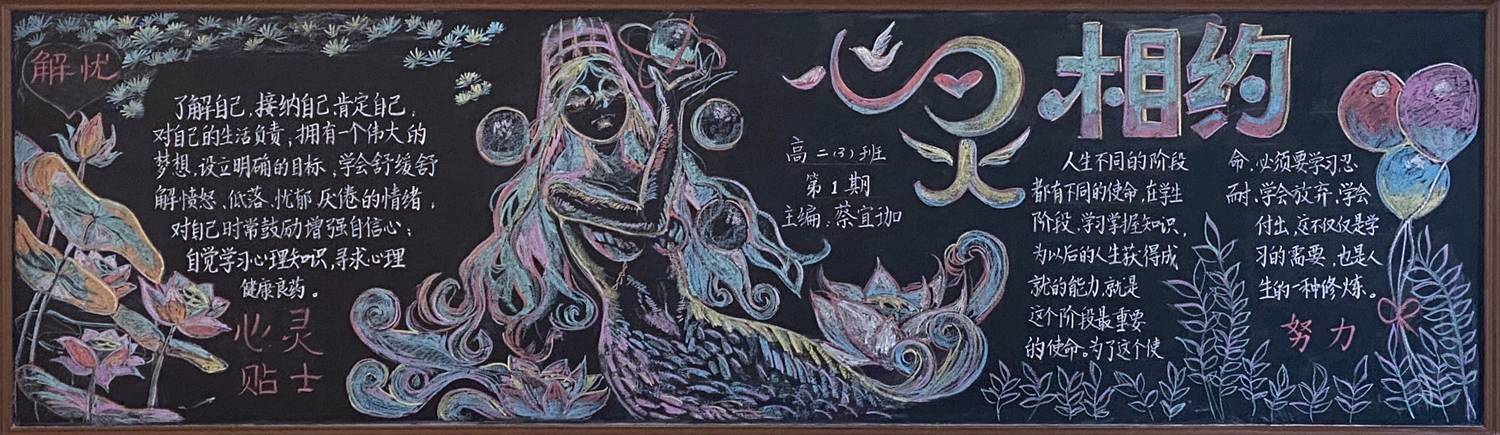 解忧
了解自己,接纳自己,肯定自己,
对自己的生活负责,拥有一个伟大的
梦想,设立明确的目标,学会舒缓舒
解愤怒、低落、忧郁、厌倦的情绪,
对自己时常鼓励增强自信心;
自觉学习心理知识,寻求心理
健康良药。
心灵
贴士
心灵相约
高二(3)班
第1期
主编:蔡宜珈
人生不同的阶段
都有不同的使命,在学生
阶段,学习掌握知识,
为以后的人生获得成
就的能力,就是
这个阶段最重要
的使命。为了这个使
命,必须要学习忍
耐,学会放弃,学会
付出,这不仅仅是学
习的需要,也是人
生的一种修炼。
努力